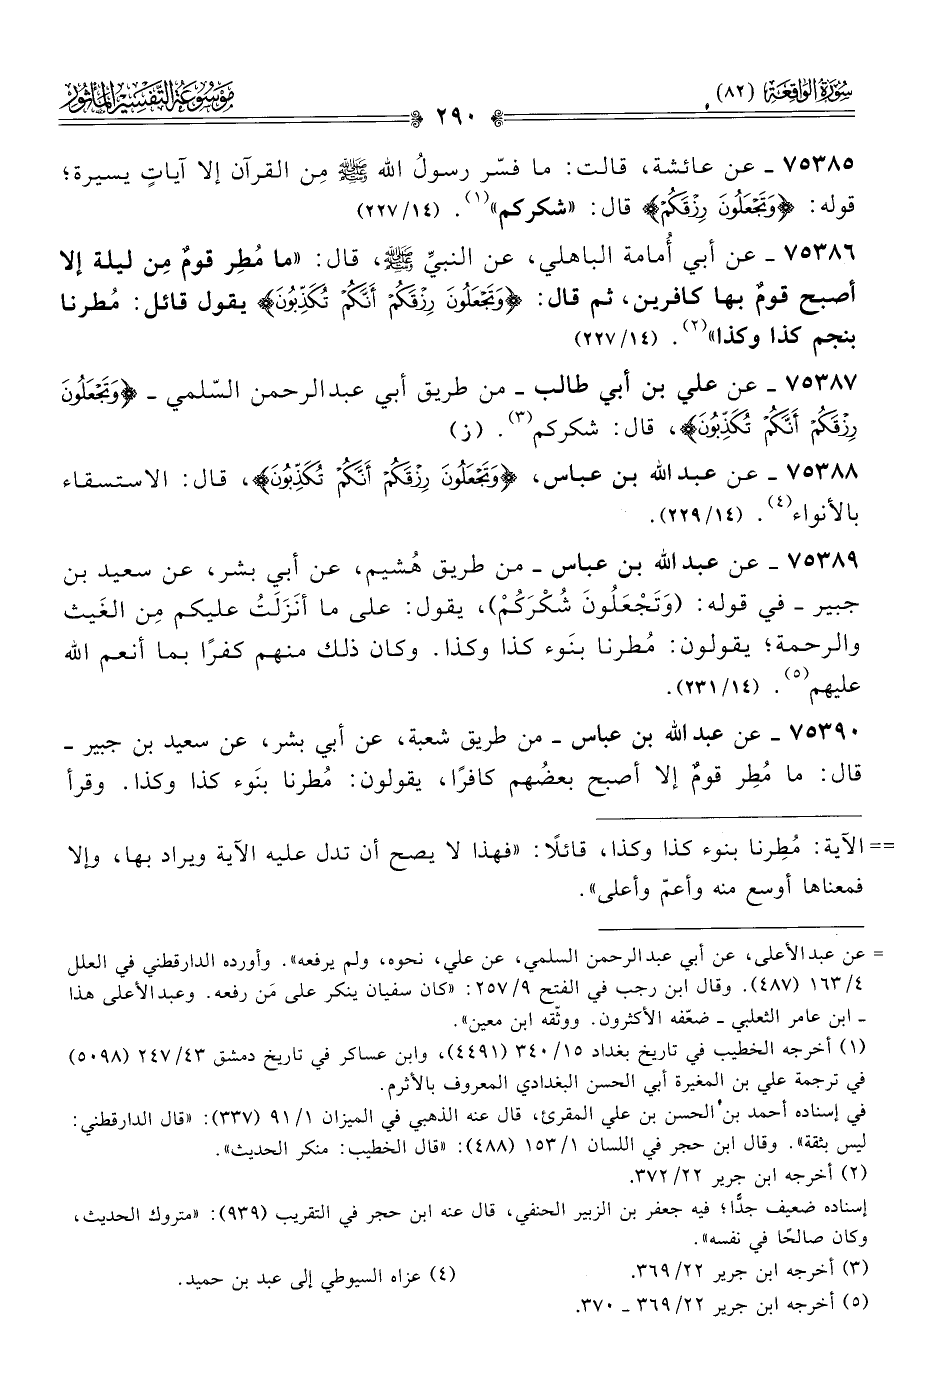 سُورَةُ الوَاقِعَة (٨٢)
٢٩٠
مَوْسُوعَة التَّفْسِيْر المَأْثُور
٧٥٣٨٥ ـ عن عائشة، قالت: ما فسّر رسولُ الله ﷺ مِن القرآن إلا آياتٍ يسيرة؛
قوله: ﴿وَتَجْعَلُونَ رِزْقَكُمْ﴾ قال: «شكركم»(١). (١٤/ ٢٢٧)
٧٥٣٨٦ ـ عن أبي أُمامة الباهلي، عن النبيِّ ﷺ، قال: «ما مُطِر قومٌ مِن ليلة إلا
أصبح قومٌ بها كافرين، ثم قال: ﴿وَتَجْعَلُونَ رِزْقَكُمْ أَنَّكُمْ تُكَذِّبُونَ﴾ يقول قائل: مُطرنا
بنجم كذا وكذا»(٢). (١٤/ ٢٢٧)
٧٥٣٨٧ ـ عن علي بن أبي طالب ـ من طريق أبي عبدالرحمن السّلمي ـ ﴿وَتَجْعَلُونَ
رِزْقَكُمْ أَنَّكُمْ تُكَذِّبُونَ﴾، قال: شكركم(٣). (ز)
٧٥٣٨٨ ـ عن عبدالله بن عباس، ﴿وَتَجْعَلُونَ رِزْقَكُمْ أَنَّكُمْ تُكَذِّبُونَ﴾، قال: الاستسقاء
بالأنواء(٤). (١٤/ ٢٢٩).
٧٥٣٨٩ ـ عن عبدالله بن عباس ـ من طريق هُشيم، عن أبي بشر، عن سعيد بن
جبير ـ في قوله: (وَتَجْعَلُونَ شُكْرَكُمْ)، يقول: على ما أنَزَلَتُ عليكم مِن الغَيث
والرحمة؛ يقولون: مُطرنا بنَوء كذا وكذا. وكان ذلك منهم كفرًا بما أنعم الله
عليهم(٥). (١٤/ ٢٣١).
٧٥٣٩٠ ـ عن عبدالله بن عباس ـ من طريق شعبة، عن أبي بشر، عن سعيد بن جبير ـ
قال: ما مُطِر قومٌ إلا أصبح بعضُهم كافرًا، يقولون: مُطرنا بنَوء كذا وكذا. وقرأ
== الآية: مُطِرنا بنوء كذا وكذا، قائلًا: «فهذا لا يصح أن تدل عليه الآية ويراد بها، وإلا
فمعناها أوسع منه وأعمّ وأعلى».
= عن عبدالأعلى، عن أبي عبدالرحمن السلمي، عن علي، نحوه، ولم يرفعه». وأورده الدارقطني في العلل
٤/ ١٦٣ (٤٨٧). وقال ابن رجب في الفتح ٩/ ٢٥٧: «كان سفيان ينكر على مَن رفعه. وعبدالأعلى هذا
ـ ابن عامر الثعلبي ـ ضعّفه الأكثرون. ووثّقه ابن معين».
(١) أخرجه الخطيب في تاريخ بغداد ١٥/ ٣٤٠ (٤٤٩١)، وابن عساكر في تاريخ دمشق ٤٣/ ٢٤٧ (٥٠٩٨)
في ترجمة علي بن المغيرة أبي الحسن البغدادي المعروف بالأثرم.
في إسناده أحمد بن الحسن بن علي المقرئ، قال عنه الذهبي في الميزان ١/ ٩١ (٣٣٧): «قال الدارقطني:
ليس بثقة». وقال ابن حجر في اللسان ١/ ١٥٣ (٤٨٨): «قال الخطيب: منكر الحديث».
(٢) أخرجه ابن جرير ٢٢/ ٣٧٢.
إسناده ضعيف جدًّا؛ فيه جعفر بن الزبير الحنفي، قال عنه ابن حجر في التقريب (٩٣٩): «متروك الحديث،
وكان صالحًا في نفسه».
(٣) أخرجه ابن جرير ٢٢/ ٣٦٩. (٤) عزاه السيوطي إلى عبد بن حميد.
(٥) أخرجه ابن جرير ٢٢/ ٣٦٩ ـ ٣٧٠.